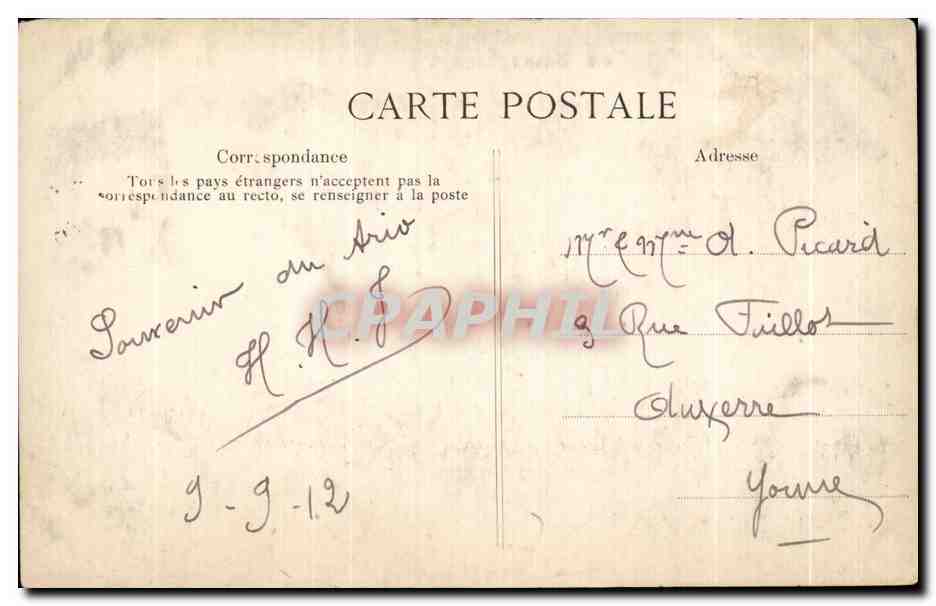 CARTE POSTALE
Correspondance
Tous les pays étrangers n'acceptent pas la
correspondance au recto, se renseigner à la poste
Souvenir du Trio
H. H. J
9-9-12
Adresse
Mr & Mme A. Picard
9 Rue Faillot
Auxerre
Yonne
CPAPHIL